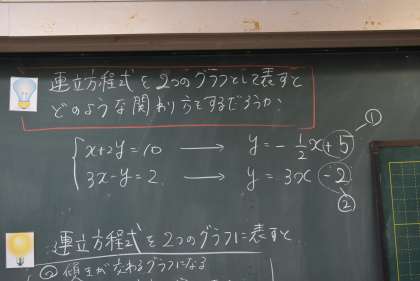 連立方程式を2つのグラフとして表すと
どのような関わり方をするだろうか?
x+2y=10 → y=-1/2x+5 ①
3x-y=2 → y=3x-2 ②
連立方程式を2つのグラフに表すと
傾きが交わるグラフになる